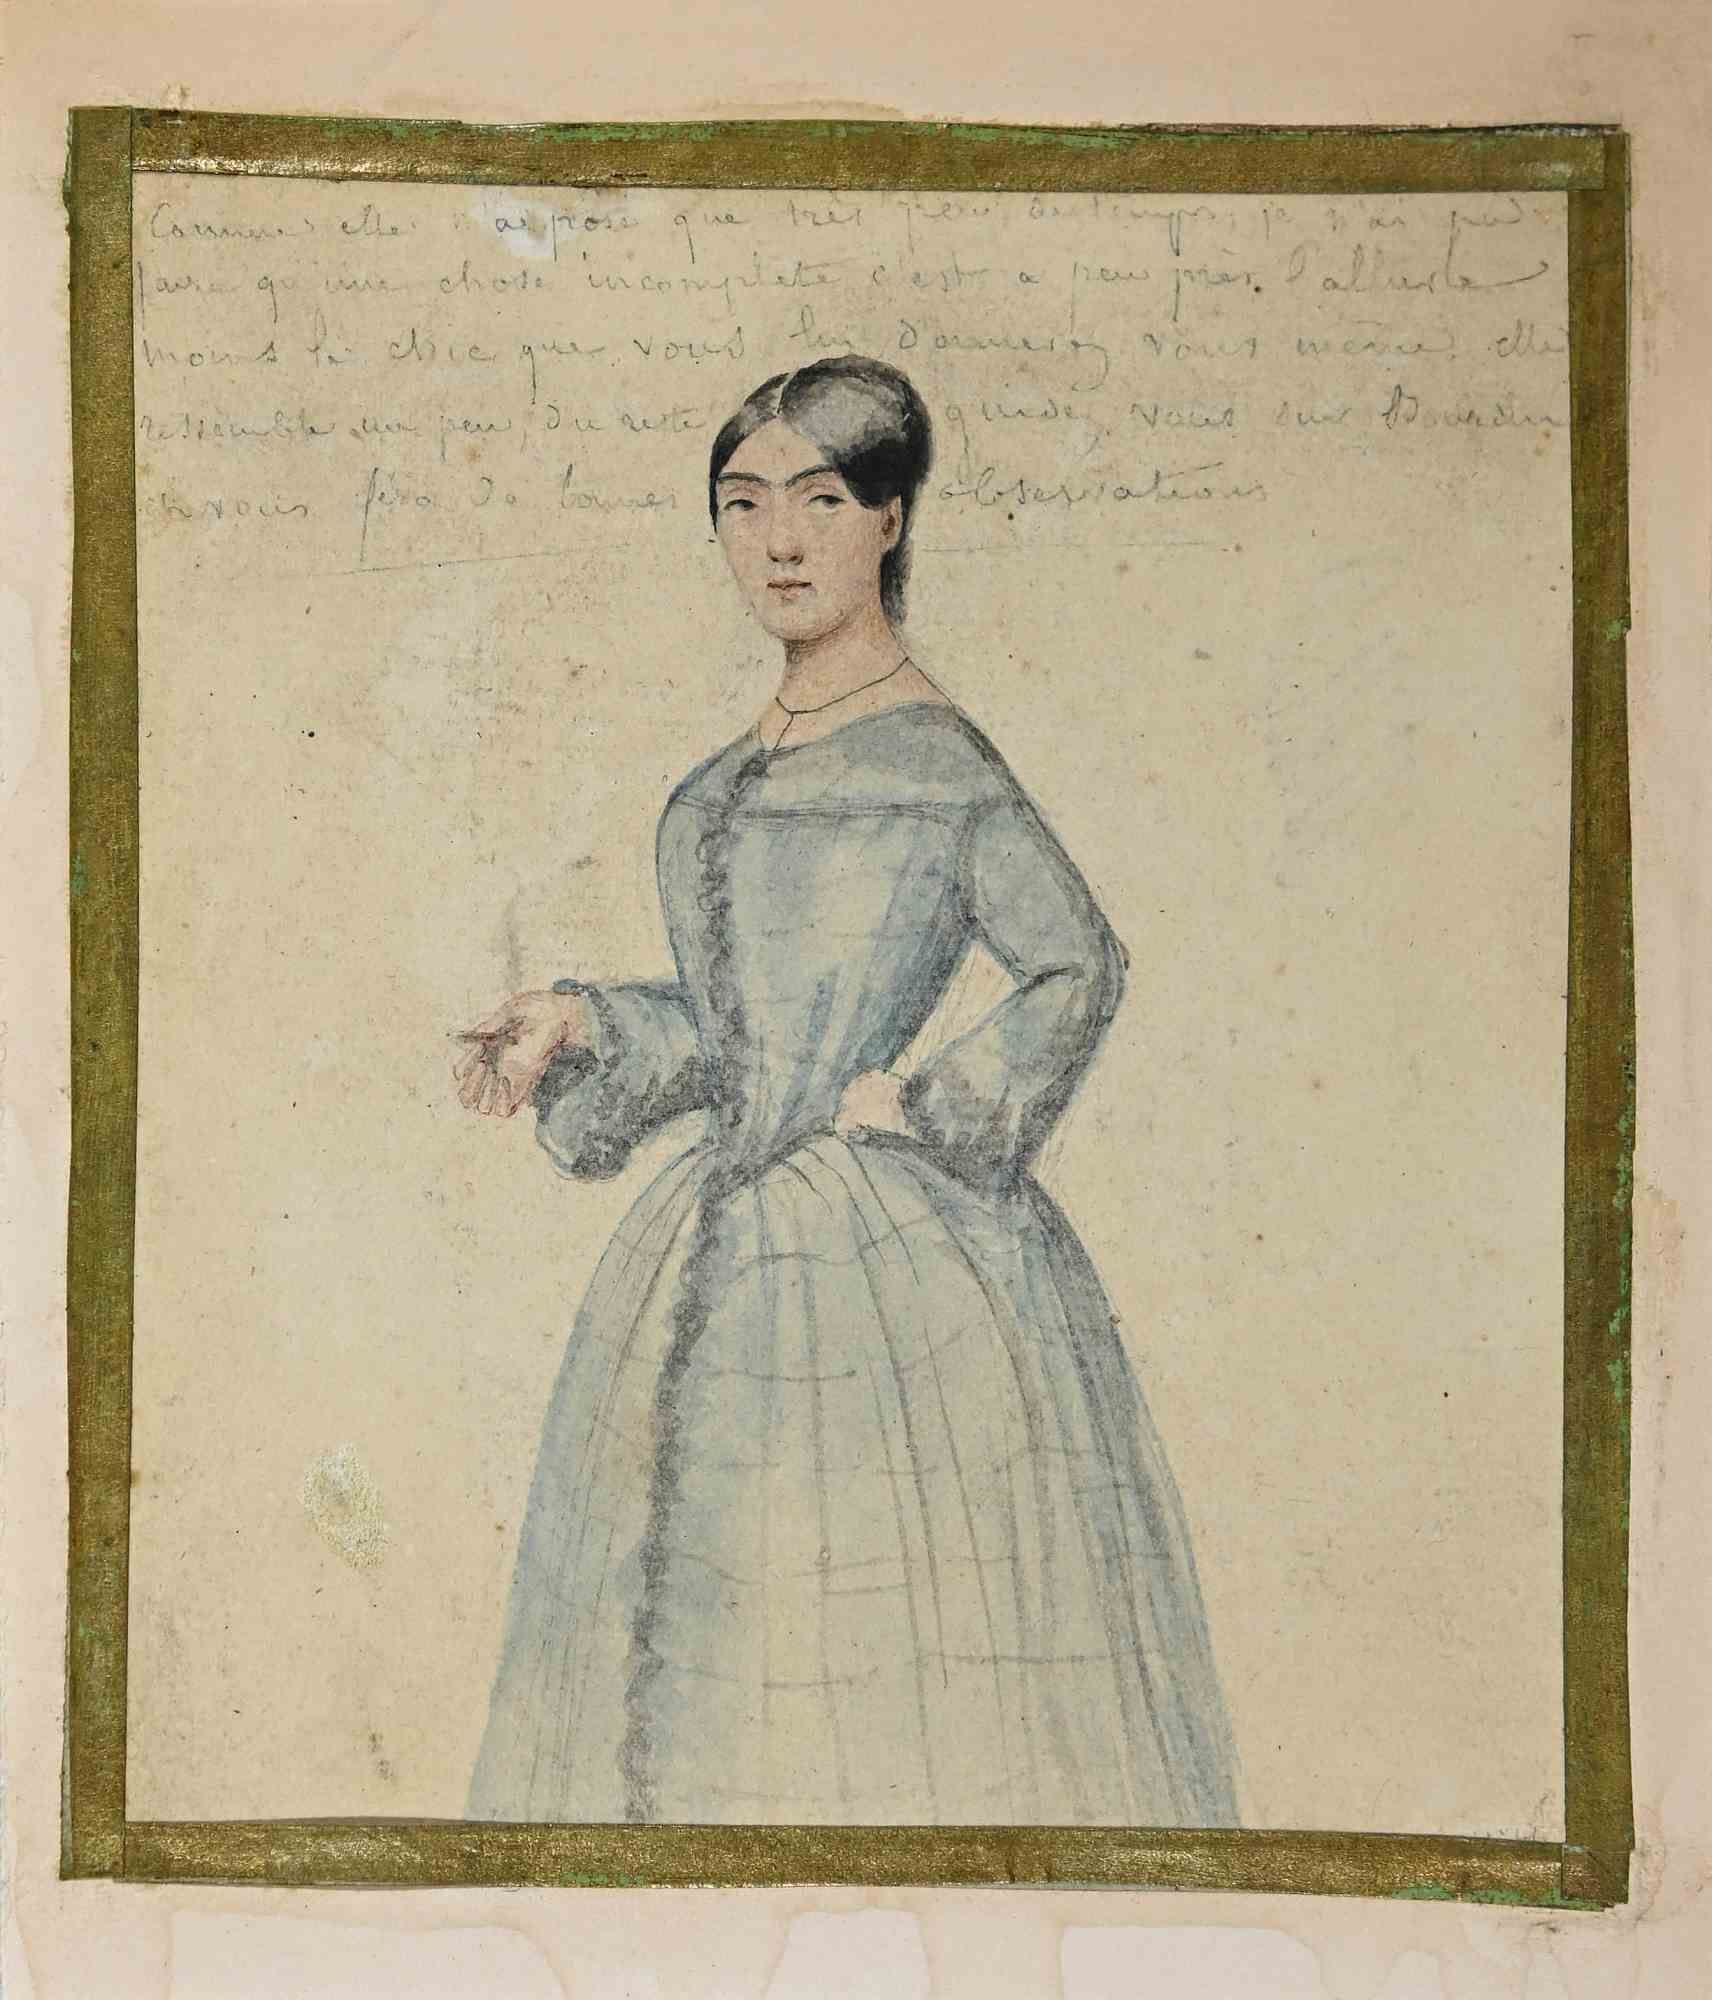 Comme elle n'a posé que très peu de temps, je n'ai pu
faire qu'une chose incomplète c'est a peu près. l'allure
moins le chic que vous lui donnerez vous même. elle
ressemble un peu, du reste guidez vous sur Bourdin
il vous fera de bonnes observations